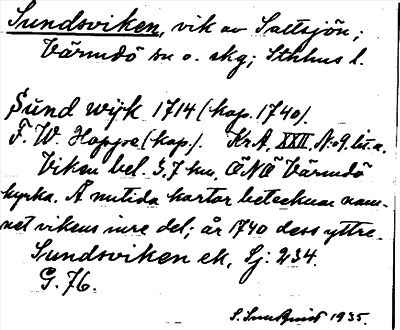 Sundsviken, vik av Saltsjön;
Värmdö sn o. skg; Sthlms l.
Sund wijk 1714 (kop. 1740).
F. W. Hoppe (kop.). Kr.A. XXII. N:o 9. lit. a.
Viken bel. 3.7 km ÖNÖ Värmdö
kyrka. Å nutida kartor betecknar nam-
net vikens inre del; år 1740 dess yttre.
Sundsviken ek, Sj. 234.
G. 76.
1935.